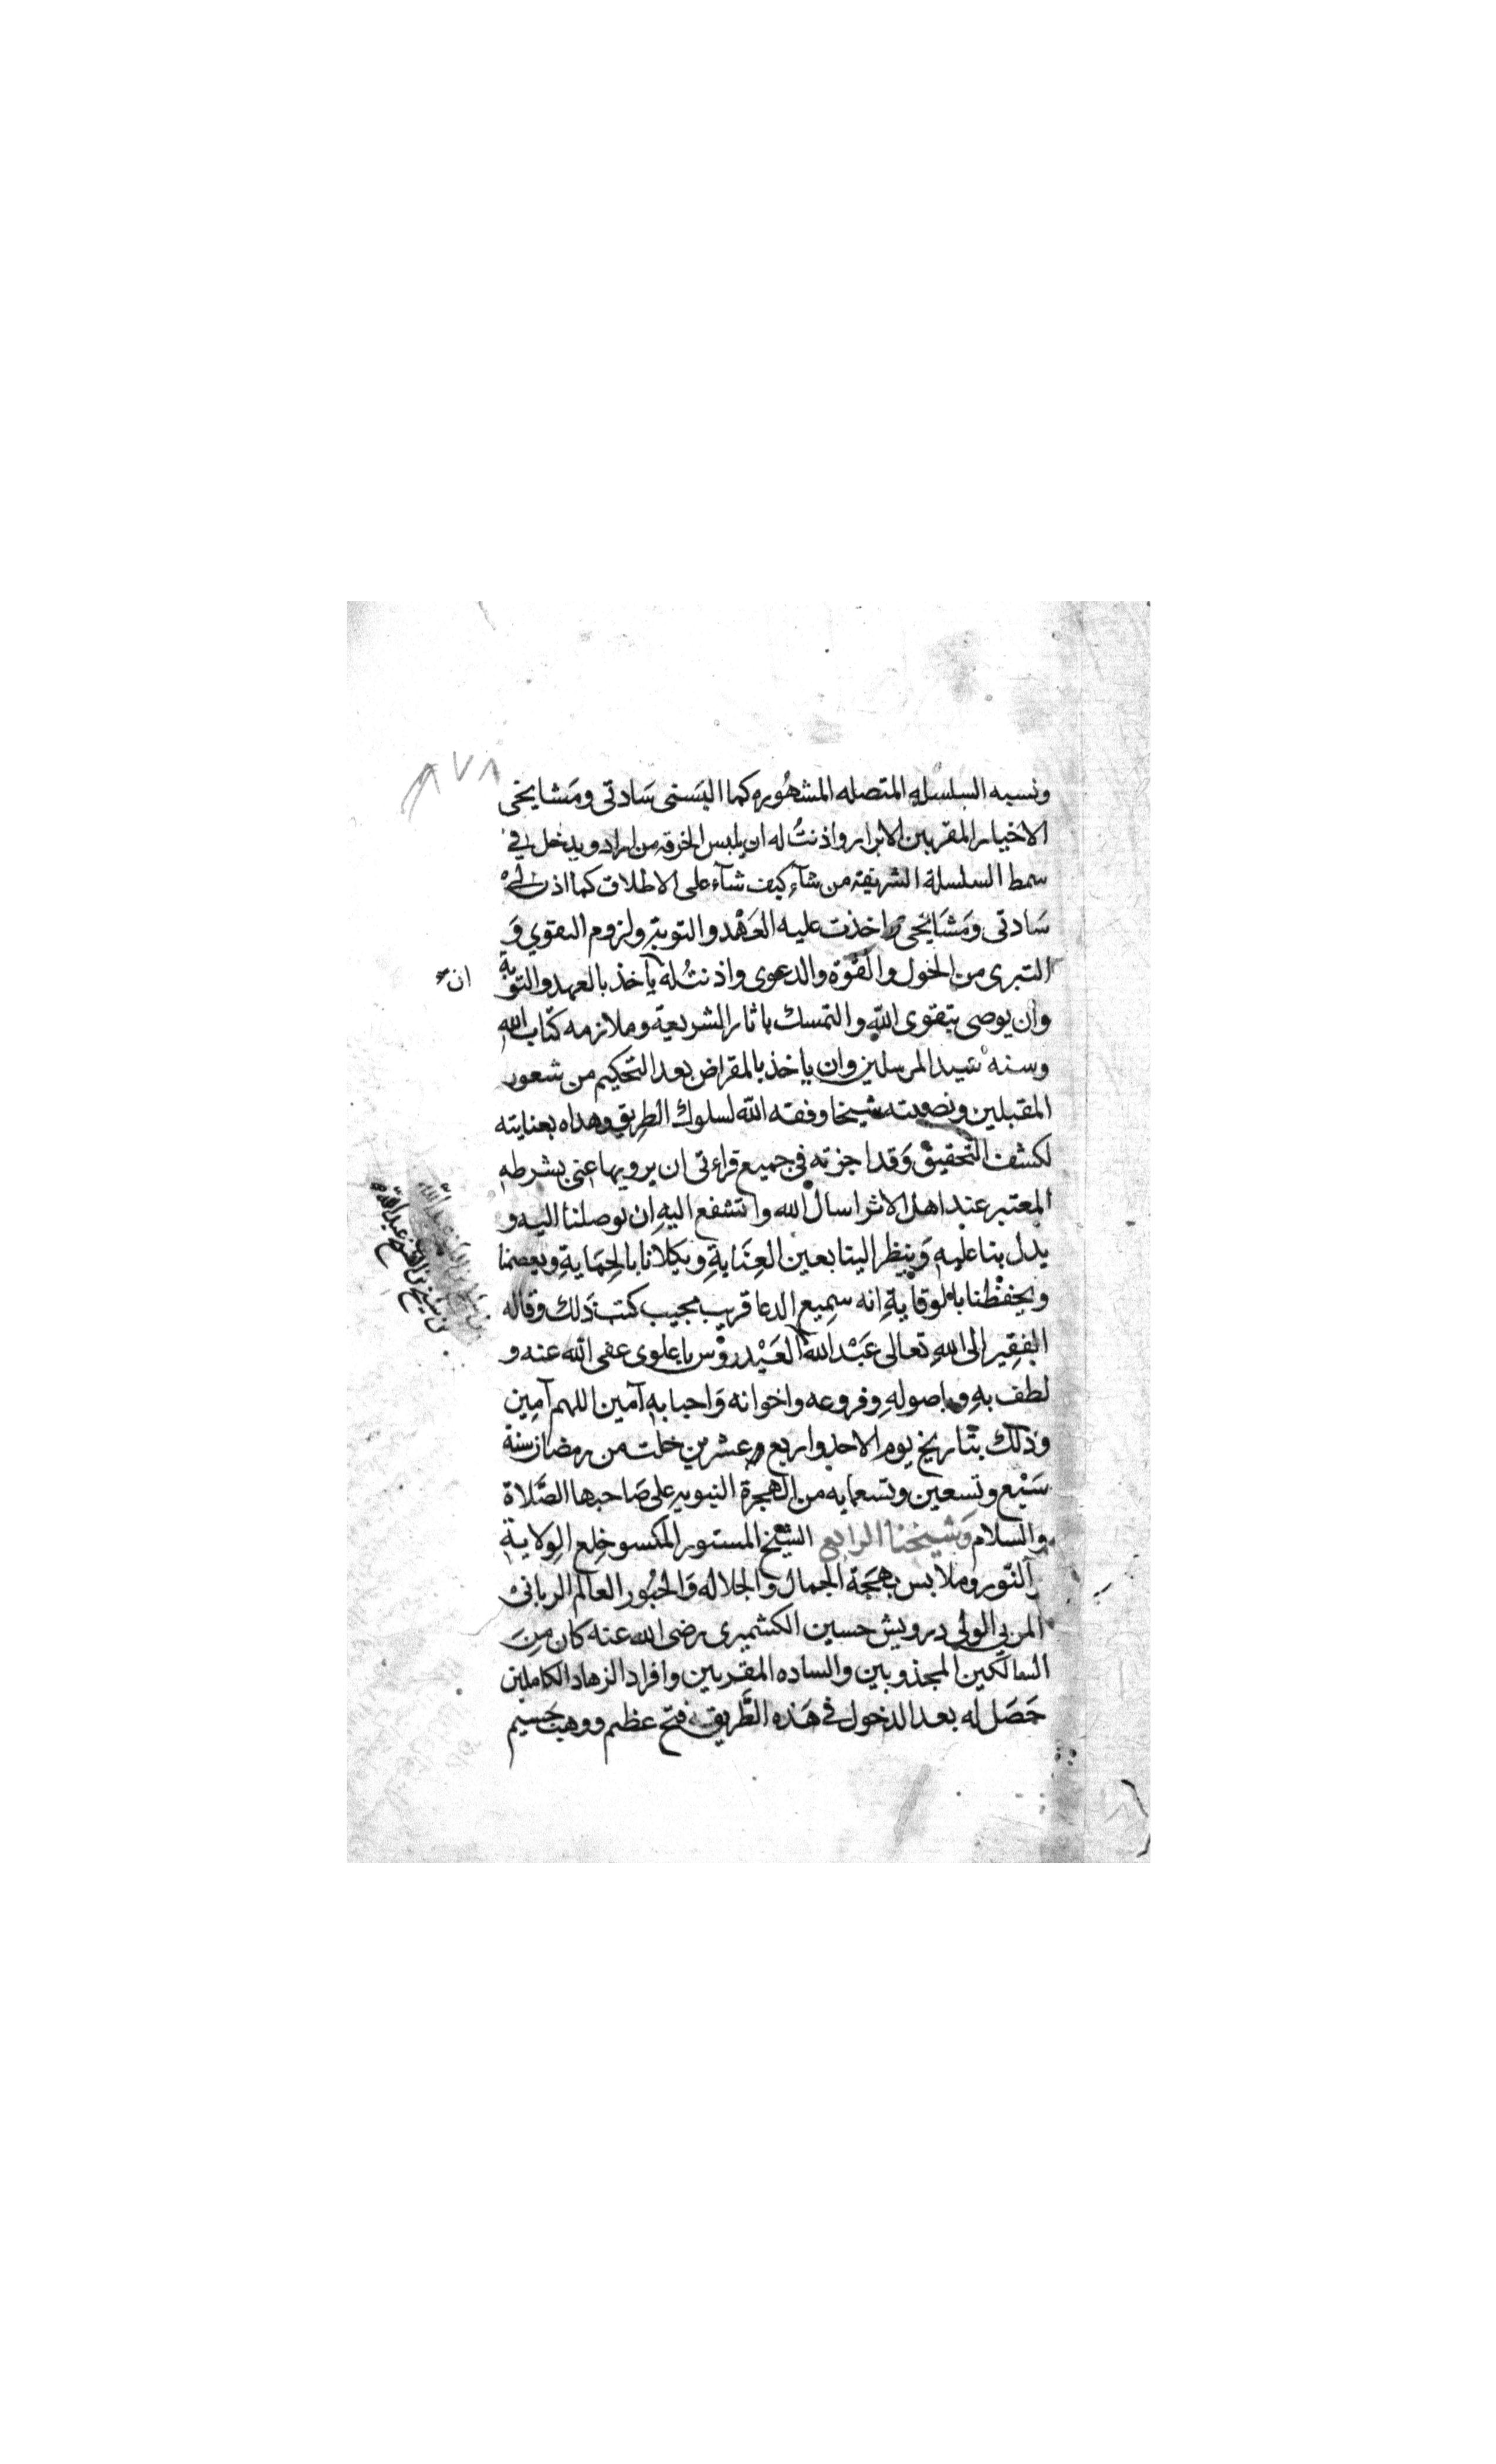 ٨٧٨
ونسبه السلسله المتصله المشهُوره كما البَسَنى سَادتى ومَشايخى
الاخيار المقربين الابرار واذنتُ له ان يلبس الخرقه من اراد ويدخل في
سمط السلسلة الشريفة من شآء كيف شآء على الاطلاق كما اذن لى
سَادتى ومَشَايخى واخذت عليه العَهْد والتوبة ولزوم التقوي وَ
التبرى من الحول والقُوّة والدعوى واذنتُ له يأخذ بالعهد والتوبة
ان
وان يوصى بتقوى اللّه والتمسك باثار الشريعة وملازمه كتاب الله
وسنه سَيد المرسلين وان ياخذ بالمقراض بعد التحكيم من شعور
المقبلين ونصبته شيخا وفقه اللّه لسلوك الطِريق وهداه بعنايته
لكشف التحقيق وَقد اجزته فى جميع قراءتى ان يرويها عنى بشرطه
المعتبر عند اهل الاثر اسال الله واتشفع اليه ان يوصلنا اليه و
يدل بنا عليه وَينظر الينا بعين العِنَايةِ ويكلانا بالحِمَايةِ ويعصمنا
ويحفظنا بالوقايةِ انه سمِيع الدعا قريب مجيب كتب ذَلك وقاله
الفقِير الى اللهِ تعالى عَبْد اللّه العَيْدروْس باعلوى عفى اللّه عنه و
لطف بهِ وباصولهِ وفروعه واخوانه وَاحبابهِ آمين اللهم آمِين
وذلك بتاريخ يوم الاحد واربع وعشرين خلت من رمضان سنة
سَبْع وتسعين وتسعمايه من الهجرة النبويه على صَاحبها الصَّلاة
والسلام وَشيخنا الرابع الشيْخ المستور المكسو خِلع الوِلايةِ
النّور وملابس بهجَة الجمال والجلاله وَالحبُور العالم الربانىْ
المربي الولي درويش حسين الكشميرى رضى الله عنه كان مِنَ
السالكين المجذوبين والساده المقربين وافراد الزهاد الكاملين
حَصَل له بعد الدخول فى هَذه الطَّريقة فتح عظيم ووهب جَسيم